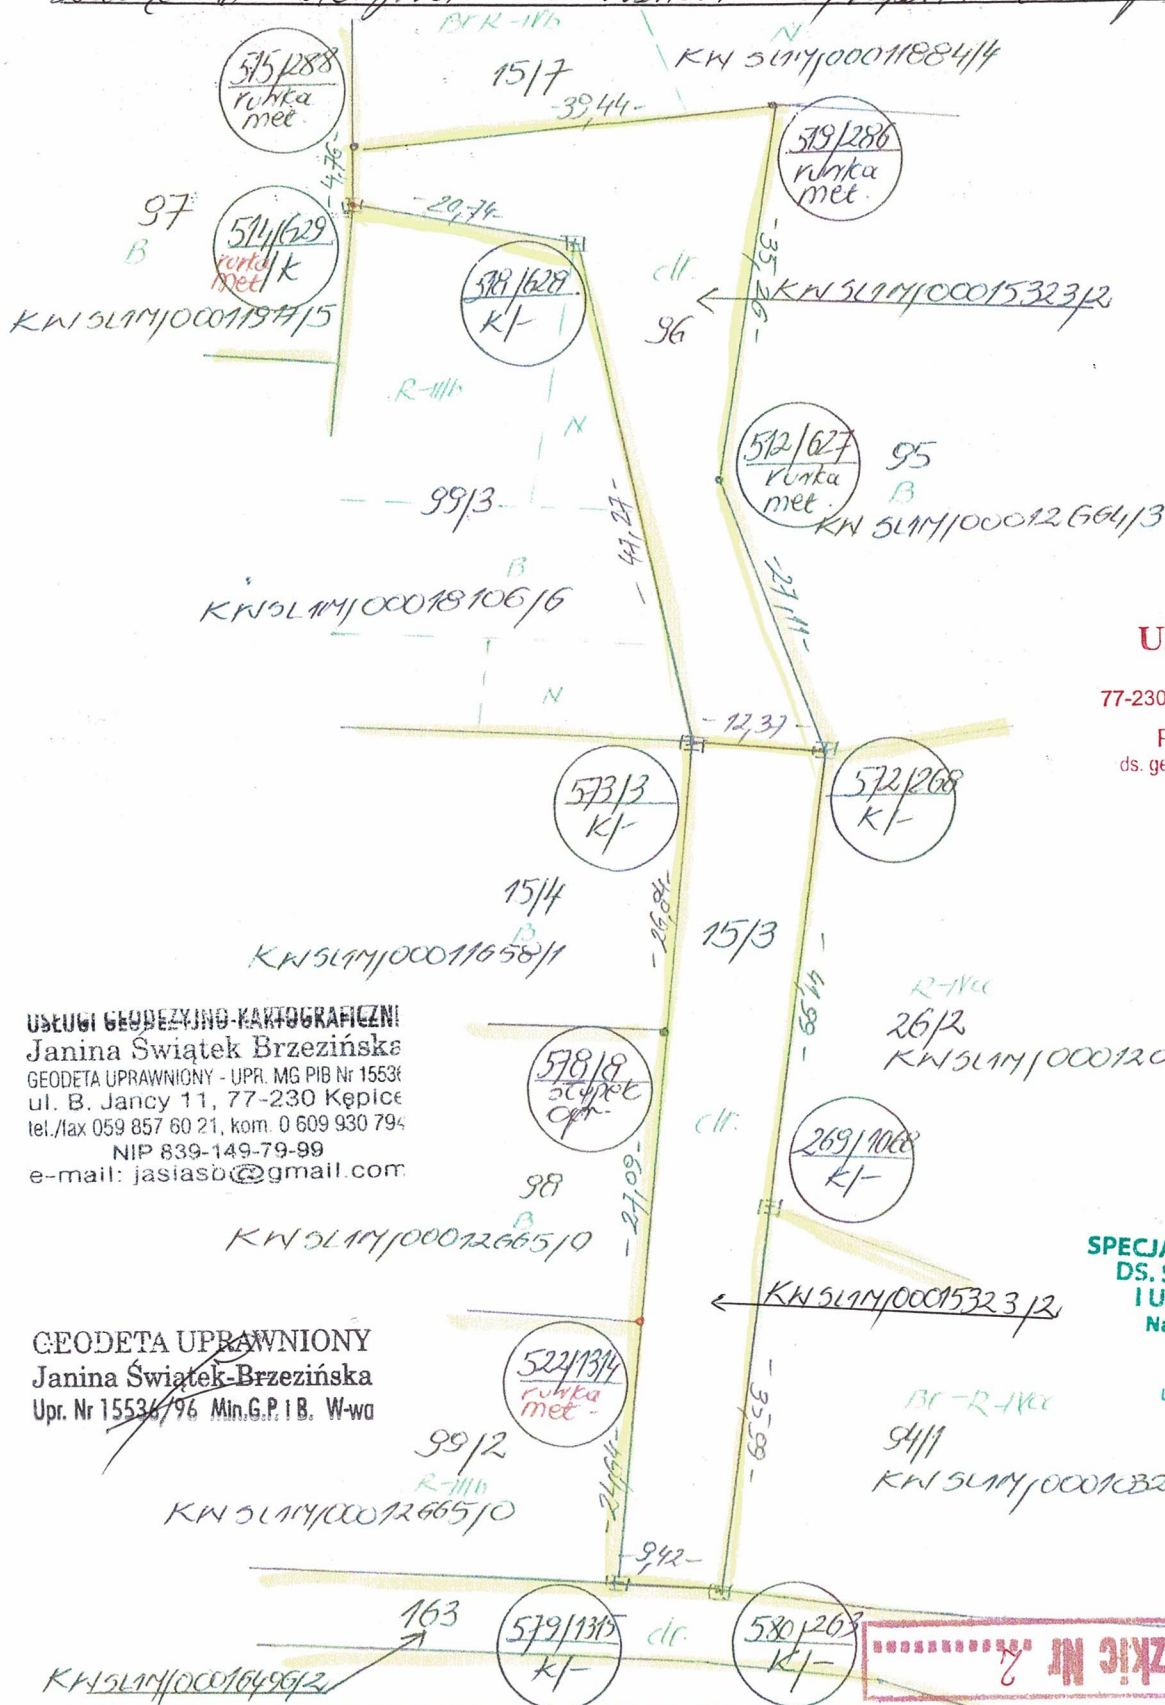 Br R-IVb
N
KW SL1M/00011884/4
515/288
rurka
met.
15/7
-39,44-
519/286
rurka
met.
-4,76-
97
B
514/629
rurka
met/k
-20,74-
KW SL1M/00011977/5
518/628
k/-
dr.
96
-35,26-
KW SL1M/00015323/2
R-IIIb
N
512/627
rurka
met.
95
B
KW SL1M/00012664/3
99/3
- 47,27 -
B
KW SL1M/00018106/6
-27,11-
U
N
77-230
-12,37-
ds. ge
573/3
k/-
572/268
k/-
15/4
B
-26,84-
15/3
KW SL1M/00011658/1
- 41,99 -
R-IVa
26/2
KW SL1M/000120
USŁUGI GEODEZYJNO-KARTOGRAFICZN
Janina Świątek Brzezińska
GEODETA UPRAWNIONY - UPR. MG PIB Nr 1553
ul. B. Jancy 11, 77-230 Kępice
tel./fax 059 857 60 21, kom. 0 609 930 79
NIP 839-149-79-99
e-mail: jasiasb@gmail.com
578/8
słupek
ogr.
dr.
269/1068
k/-
98
B
-27,09-
KW SL1M/00012665/0
SPECJA
DS. S
I U
Na
KW SL1M/00015323/2
GEODETA UPRAWNIONY
Janina Świątek-Brzezińska
Upr. Nr 15536/96 Min.G.P. i B. W-wa
522/1314
rurka
met-
-35,99-
Br-R-IVa
94/1
KW SL1M/0001032
99/2
R-IIIb
-24,64-
KW SL1M/00012665/0
-9,42-
163
579/1315
k/-
dr.
580/263
k/-
zkic Nr 2
KW SL1M/00016496/2